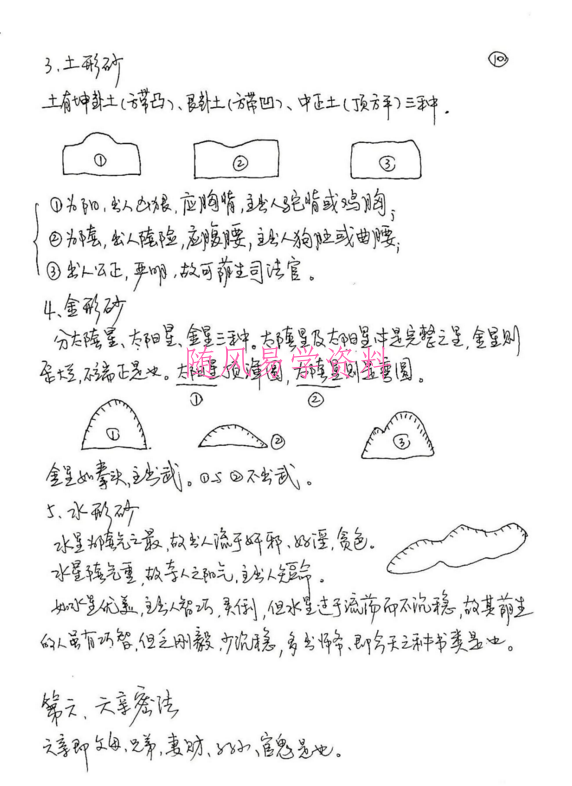 3、土形砂
⑩
土有坤卦土(方带凸)、艮卦土(方带凹)、中正土(顶方平)三种.
① ② ③
①为阳,出人凶狠,应胸脊,主出人驼背或鸡胸;
②为阴,出人阴险,应腹腰,主出人狗肚或曲腰;
③出人公正,严明,故可荫生司法官。
4、金形砂
分太阴星、太阳星、金星三种。太阴星及太阳星中是完整之星,金星则
歪头,不端正是也。太阳星顶浑圆,太阴星则
圆。
随风易学资料
① ②
① ② ③
金星如拳头,主出武。①与②不出武。
5、水形砂
水星为阴气之最,故出人流于奸邪、好淫,贪色。
水星阴气重,故夺人之阳气,主出人短命。
如水星优美,主出人智巧,灵
,但水星过于流荡而不沉稳,故其荫生
的人虽有巧智,但乏刚毅,少沉稳,多出师爷、即今天之秘书类是也。
第六、六亲密法
六亲即父母、兄弟、妻财、
、官鬼是也。